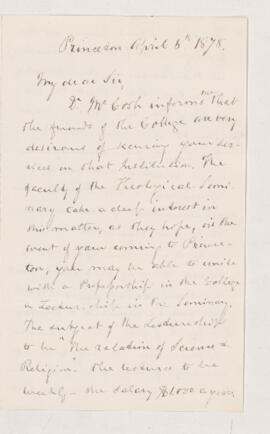 Princeton April 6th 1878.
My dear Sir,
Dr McCosh informs me that
the friends of the College are very
desirous of securing your ser-
vices in that Institution. The
faculty of the Theological Semi-
nary take a deep interest in
this matter, as they hope, in the
event of your coming to Prince-
ton, you may be able to unite
with a Professorship in the College
a Lectureship in the Seminary.
The subject of the Lectureship
to be "The relation of Science &
Religion". The lectures to be
weekly - the salary $1000 a year.